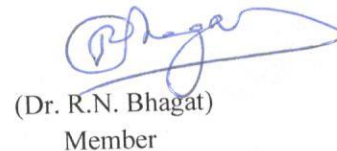 Bhagat
(Dr. R.N. Bhagat)
Member